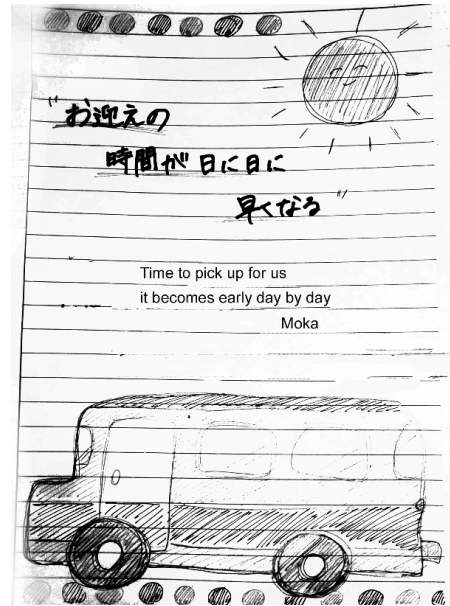 "お迎えの
時間が 日に日に
早くなる"
Time to pick up for us
it becomes early day by day
Moka